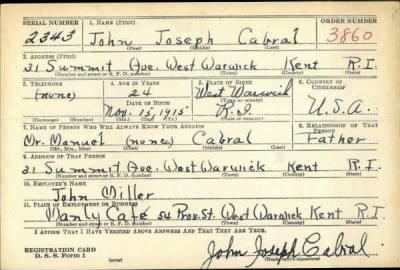 SERIAL NUMBER 1. NAME (Print) ORDER NUMBER
2343 John Joseph Cabral 3860
(First) (Middle) (Last)
2. ADDRESS (Print)
31 Summit Ave. West Warwick Kent R.I.
(Number and street or R. F. D. number) (Town) (County) (State)
3. TELEPHONE 4. AGE IN YEARS 5. PLACE OF BIRTH 6. COUNTRY OF CITIZENSHIP
(none) 24 West Warwick
DATE OF BIRTH (Town or county)
Nov. 15, 1915 R.I. U.S.A.
(Mo.) (Day) (Yr.) (State or country)
7. NAME OF PERSON WHO WILL ALWAYS KNOW YOUR ADDRESS 8. RELATIONSHIP OF THAT PERSON
Mr. Manuel (none) Cabral Father
(Mr., Mrs., Miss) (First) (Middle) (Last)
9. ADDRESS OF THAT PERSON
31 Summit Ave. West Warwick Kent R.I.
(Number and street or R. F. D. number) (Town) (County) (State)
10. EMPLOYER'S NAME
John Miller
11. PLACE OF EMPLOYMENT OR BUSINESS
Manly Cafe Prov. St. West Warwick Kent R.I.
(Number and street or R. F. D. number) (Town) (County) (State)
I AFFIRM THAT I HAVE VERIFIED ABOVE ANSWERS AND THAT THEY ARE TRUE.
REGISTRATION CARD
D. S. S. Form 1 John Joseph Cabral
(Registrant's signature)